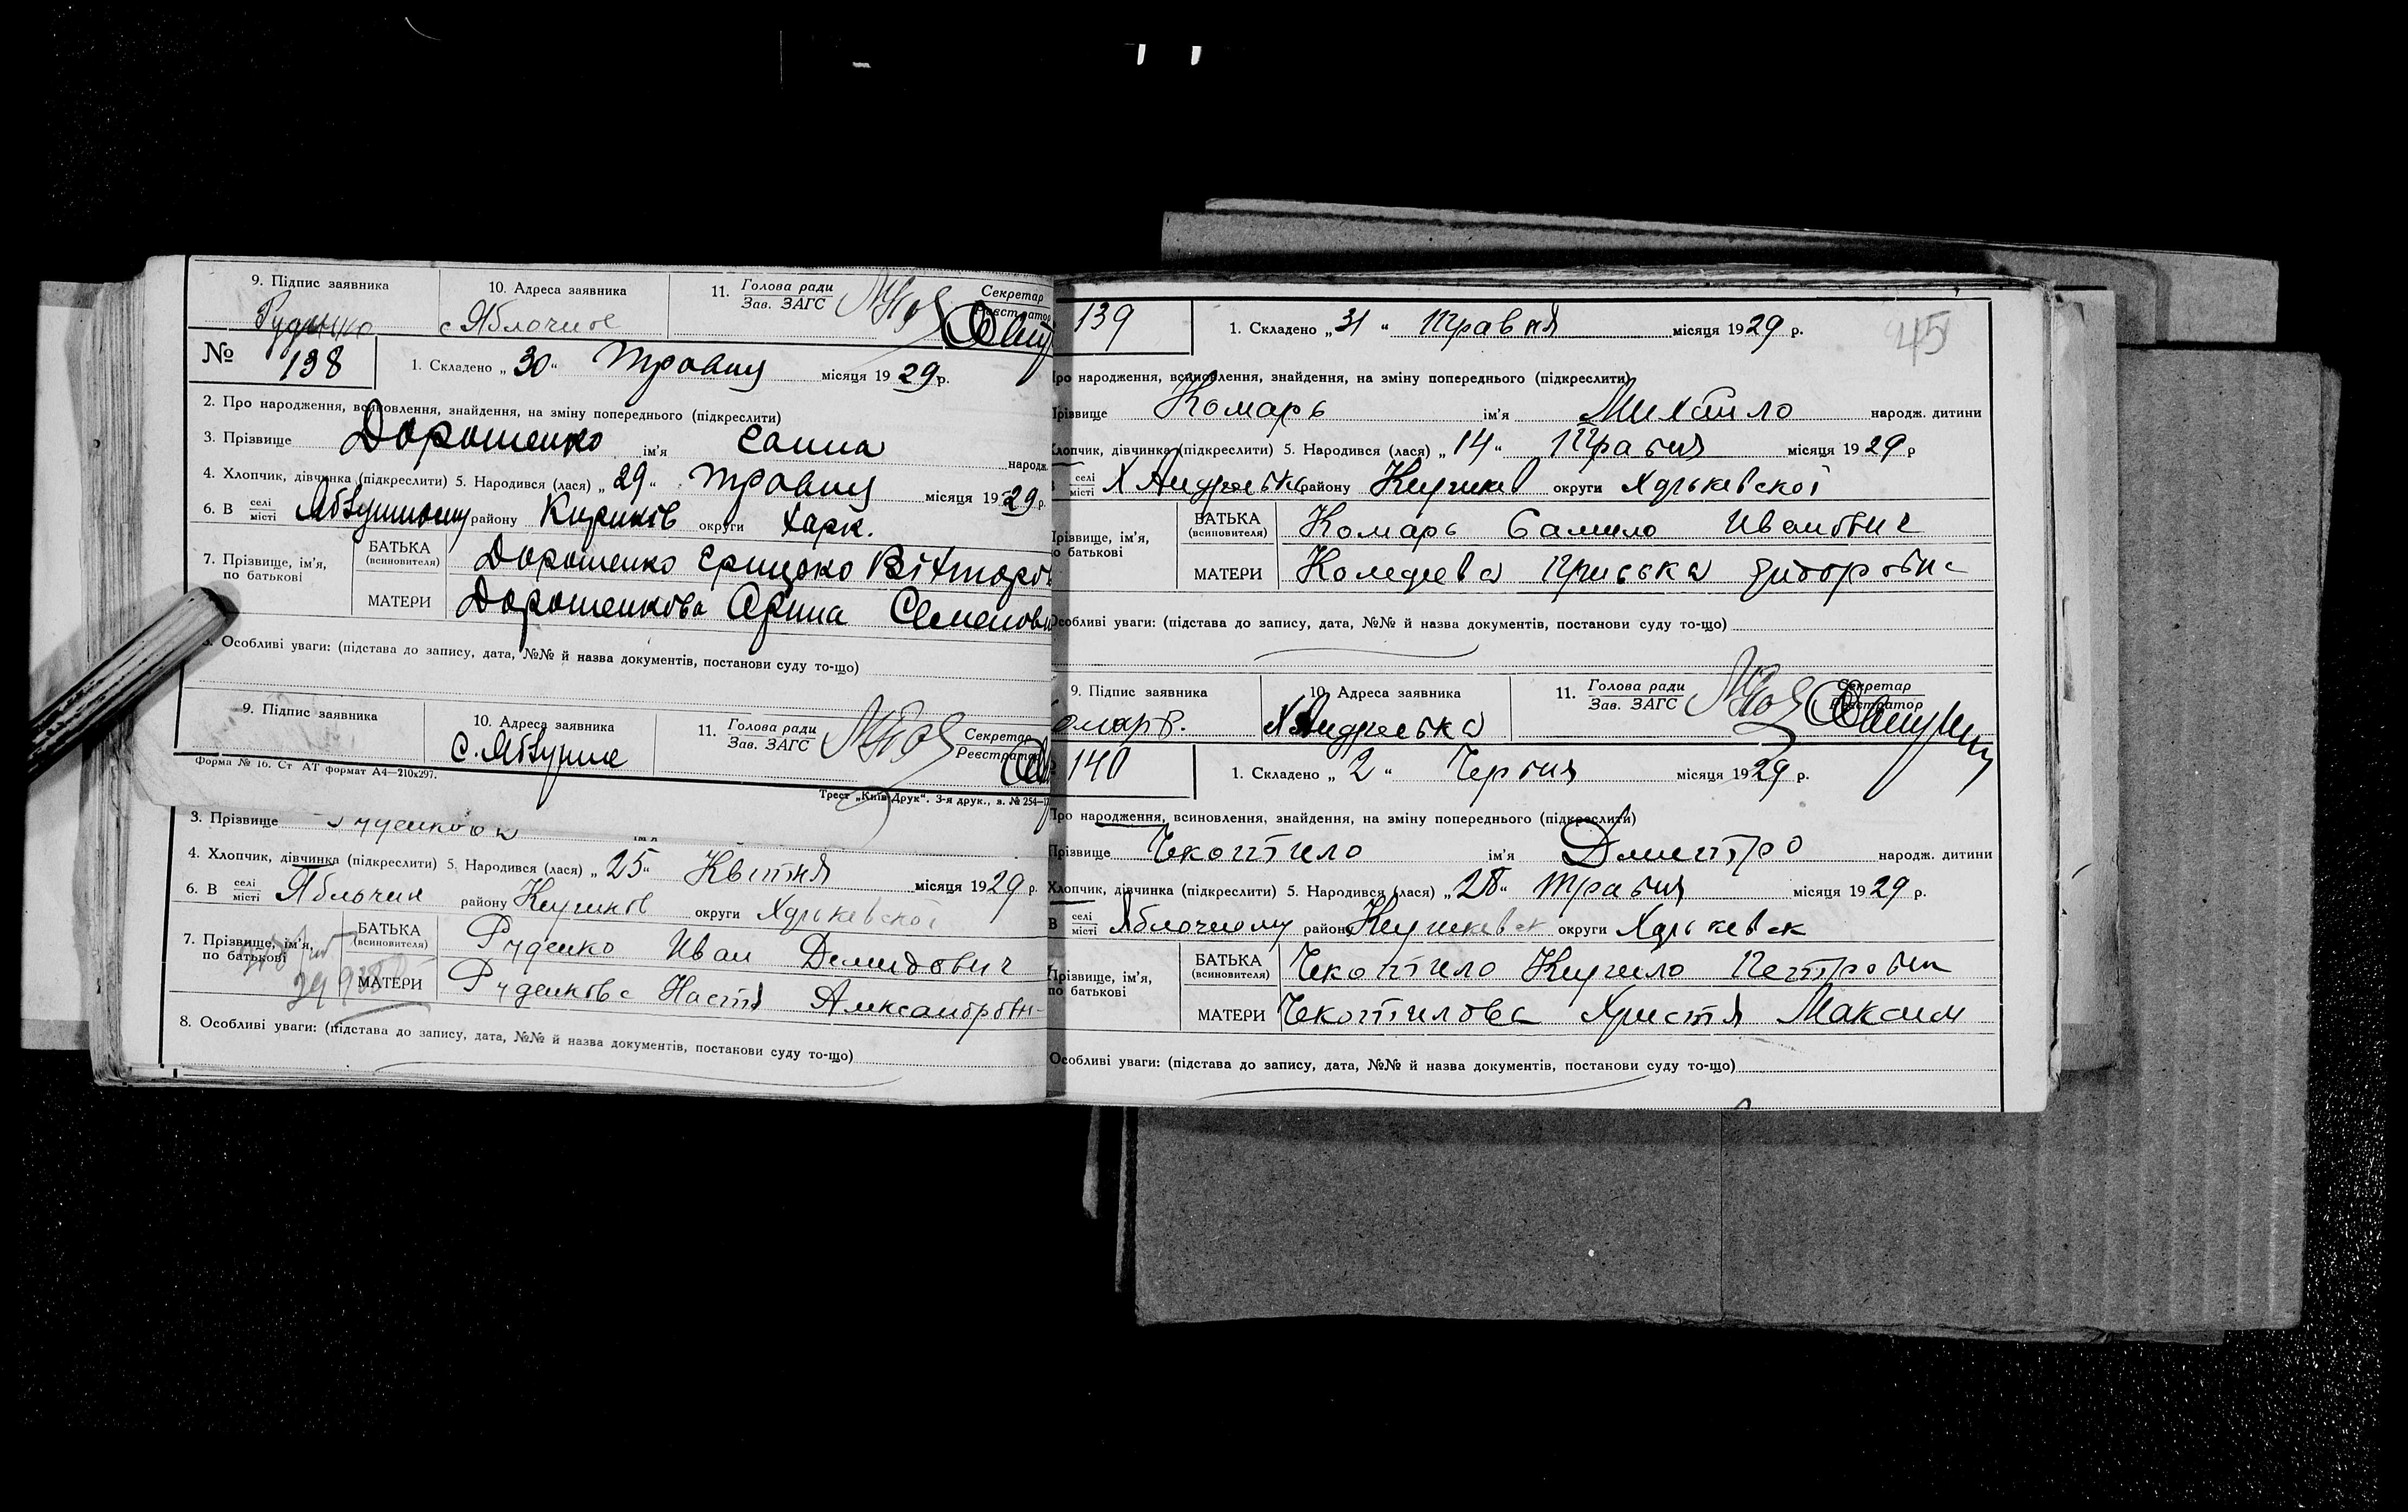 9. Підпис заявника 10. Адреса заявника 11. Голова ради Секретар
Зав. ЗАГС Реєстратор
с Яблочное
№ 138 1. Складено „30“ Травня місяця 1929 р.
2. Про народження, всиновлення, знайдення, на зміну попереднього (підкреслити)
3. Прізвище Дорошенко ім'я Ганна народж.
4. Хлопчик, дівчинка (підкреслити) 5. Народився (лася) „29“ Травня місяця 1929 р.
6. В селі району Кириків округи Харк.
місті
7. Прізвище, ім'я, по батькові БАТЬКА (всиновителя) Дорошенко
МАТЕРИ Дорошенкова Орина Семеновн
8. Особливі уваги: (підстава до запису, дата, №№ й назва документів, постанови суду то-що)
9. Підпис заявника 10. Адреса заявника 11. Голова ради Секретар
Зав. ЗАГС Реєстратор
Форма № 16. Ст АТ формат А4—210х297.
Трест „Київ-Друк“. 3-я друк., в. № 254—
3. Прізвище Руденкова ім'я
4. Хлопчик, дівчинка (підкреслити) 5. Народився (лася) „25“ Квітня місяця 1929 р.
6. В селі Яблочня району Кириків округи Харьківської
місті
7. Прізвище, ім'я, по батькові БАТЬКА (всиновителя) Руденко Иван Демидович
МАТЕРИ Руденкова Настя
8. Особливі уваги: (підстава до запису, дата, №№ й назва документів, постанови суду то-що)
45
139 1. Складено „31“ Травня місяця 1929 р.
Про народження, всиновлення, знайдення, на зміну попереднього (підкреслити)
Прізвище Комарь ім'я Михайло народж. дитини
Хлопчик, дівчинка (підкреслити) 5. Народився (лася) „14“ Травня місяця 1929 р
селі Х району Кириків округи Харьківської
місті
Прізвище, ім'я, по батькові БАТЬКА (всиновителя) Комарь Самило Иванович
МАТЕРИ
Особливі уваги: (підстава до запису, дата, №№ й назва документів, постанови суду то-що)
9. Підпис заявника 10. Адреса заявника 11. Голова ради Секретар
Зав. ЗАГС Реєстратор
омарь. Х Андреевка
140 1. Складено „2“ Червня місяця 1929 р.
Про народження, всиновлення, знайдення, на зміну попереднього (підкреслити)
Прізвище Чкотило ім'я Дмитро народж. дитини
Хлопчик, дівчинка (підкреслити) 5. Народився (лася) „28“ Травня місяця 1929 р.
В селі Яблочному району округи Харьківськ
місті
Прізвище, ім'я, по батькові БАТЬКА (всиновителя) Чкотило Кирило Петрович
МАТЕРИ Чкотилова Христя Максим
Особливі уваги: (підстава до запису, дата, №№ й назва документів, постанови суду то-що)